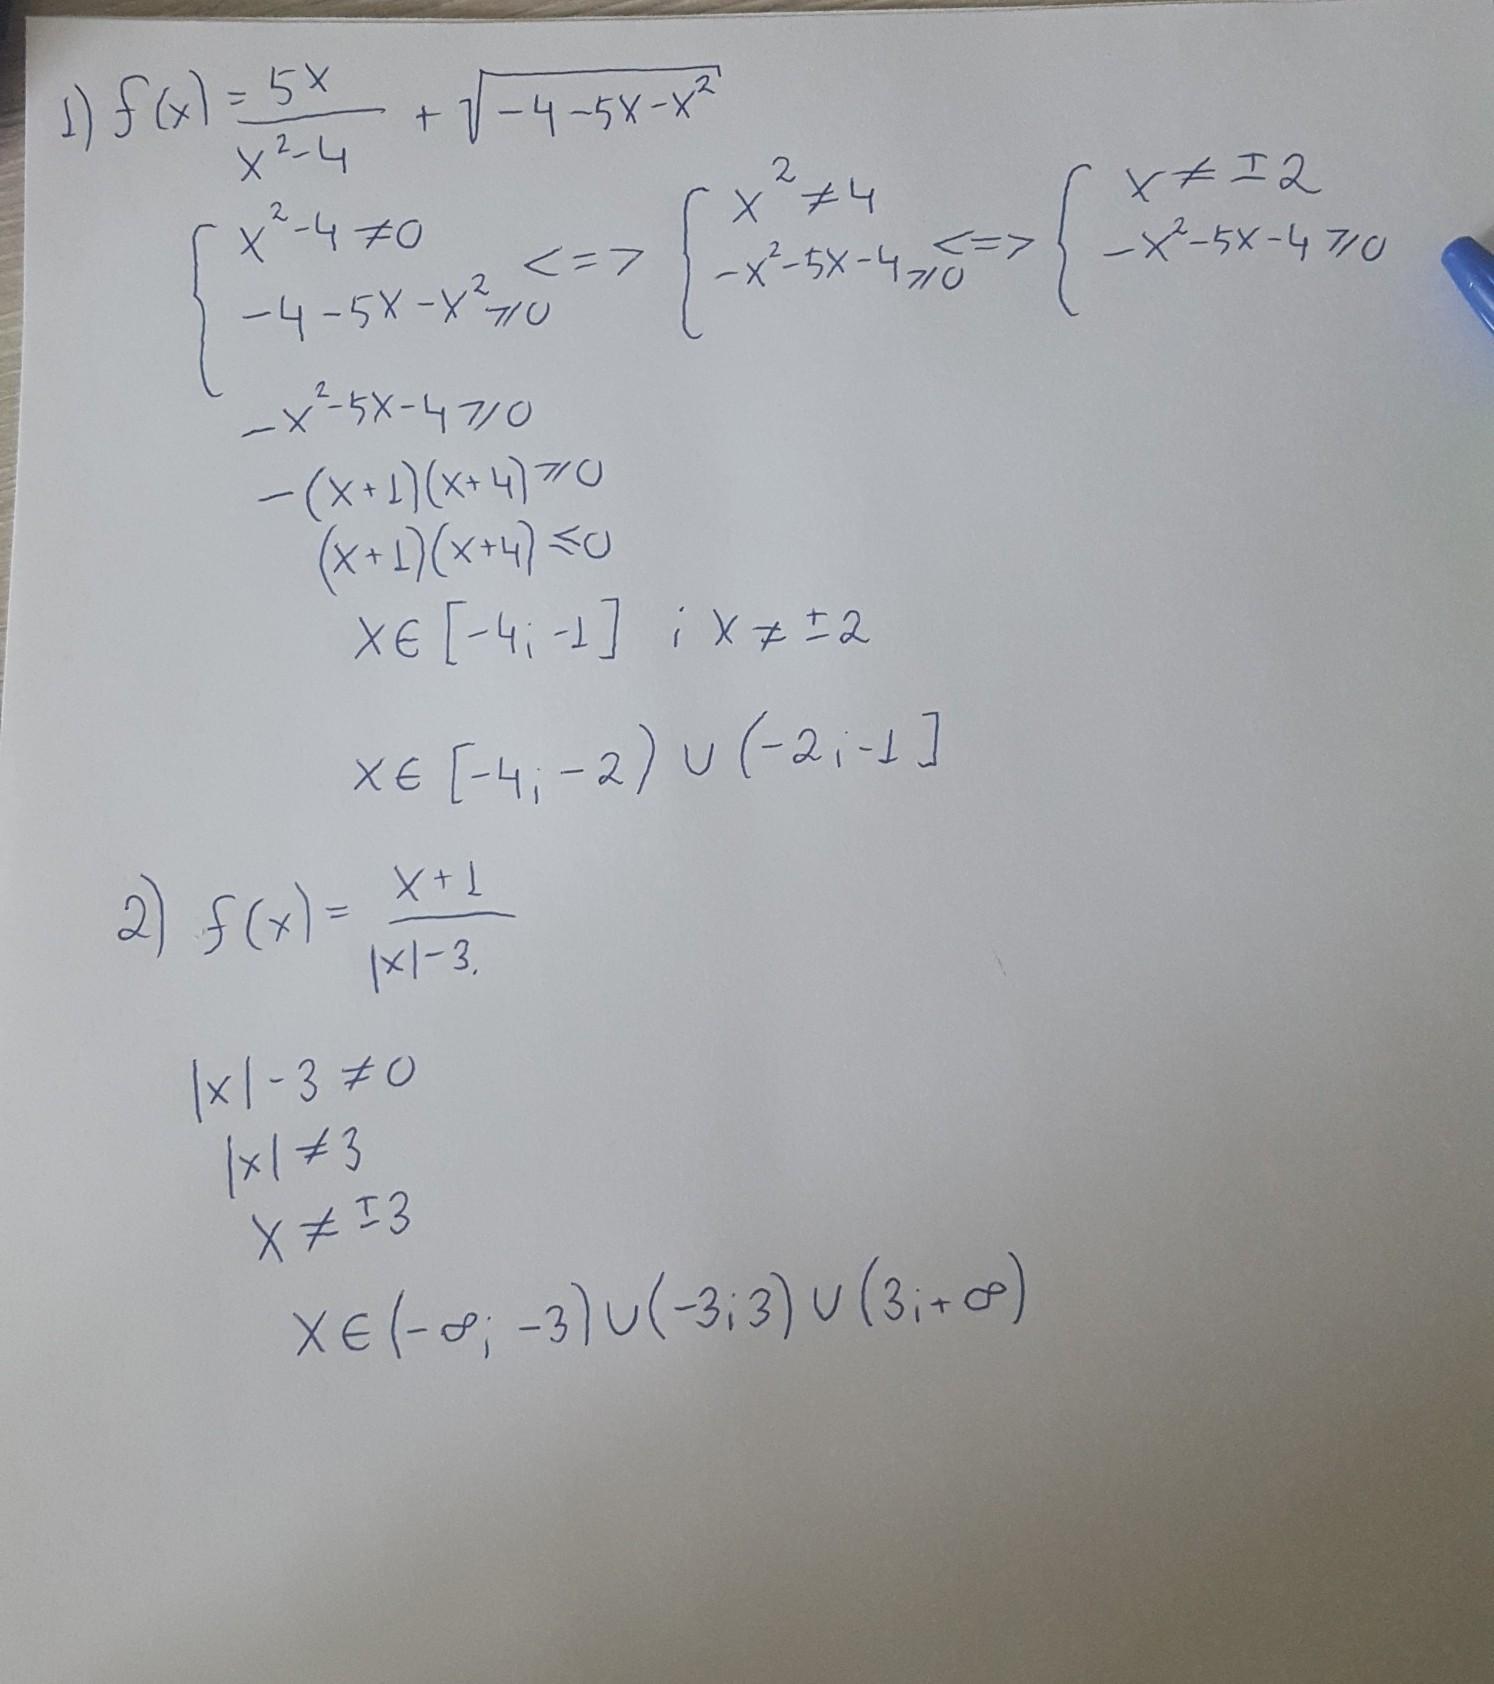 1) f(x) = 5x / (x² - 4) + √(-4 - 5x - x²)
{ x² - 4 ≠ 0 ; -4 - 5x - x² ⩾ 0 <=> { x² ≠ 4 ; -x² - 5x - 4 ⩾ 0 <=> { x ≠ ±2 ; -x² - 5x - 4 ⩾ 0
-x² - 5x - 4 ⩾ 0
-(x+1)(x+4) ⩾ 0
(x+1)(x+4) ⩽ 0
x ∈ [-4; -1] ; x ≠ ±2
x ∈ [-4; -2) ∪ (-2; -1]
2) f(x) = (x+1) / (|x| - 3)
|x| - 3 ≠ 0
|x| ≠ 3
x ≠ ±3
x ∈ (-∞; -3) ∪ (-3; 3) ∪ (3; +∞)